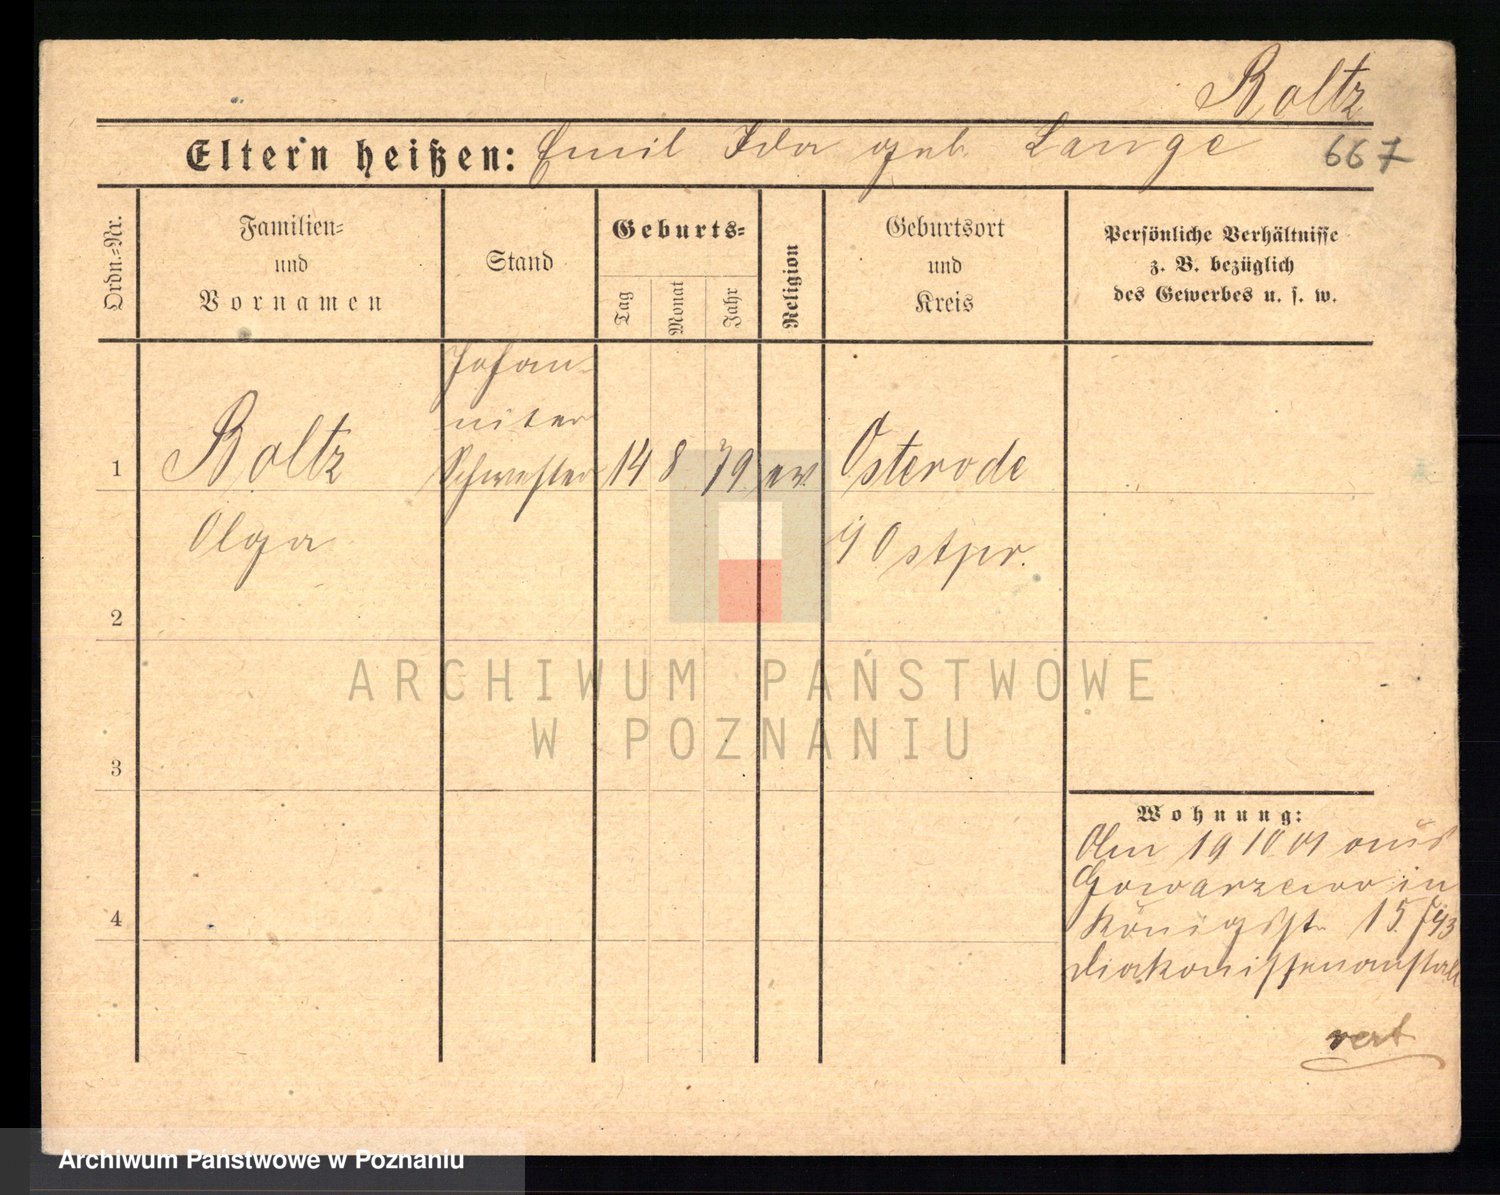 Boltz
Eltern heißen: Emil Ida geb. Lange
667
Ordn.=Nr.
Familien=
und
Vornamen
Stand
Geburts=
Tag
Monat
Jahr
Religion
Geburtsort
und
Kreis
Persönliche Verhältnisse
z. B. bezüglich
des Gewerbes u. s. w.
1
Boltz
Olga
Johan-
niter
Schwester
14 8 79 ev.
Osterode
Ostpr.
2
3
4
Wohnung:
Am 19 10 01 aus
Gowarzewo in
Königsstr. 15
Diakonissenanstalt
vert
ARCHIWUM PAŃSTWOWE
W POZNANIU
Archiwum Państwowe w Poznaniu